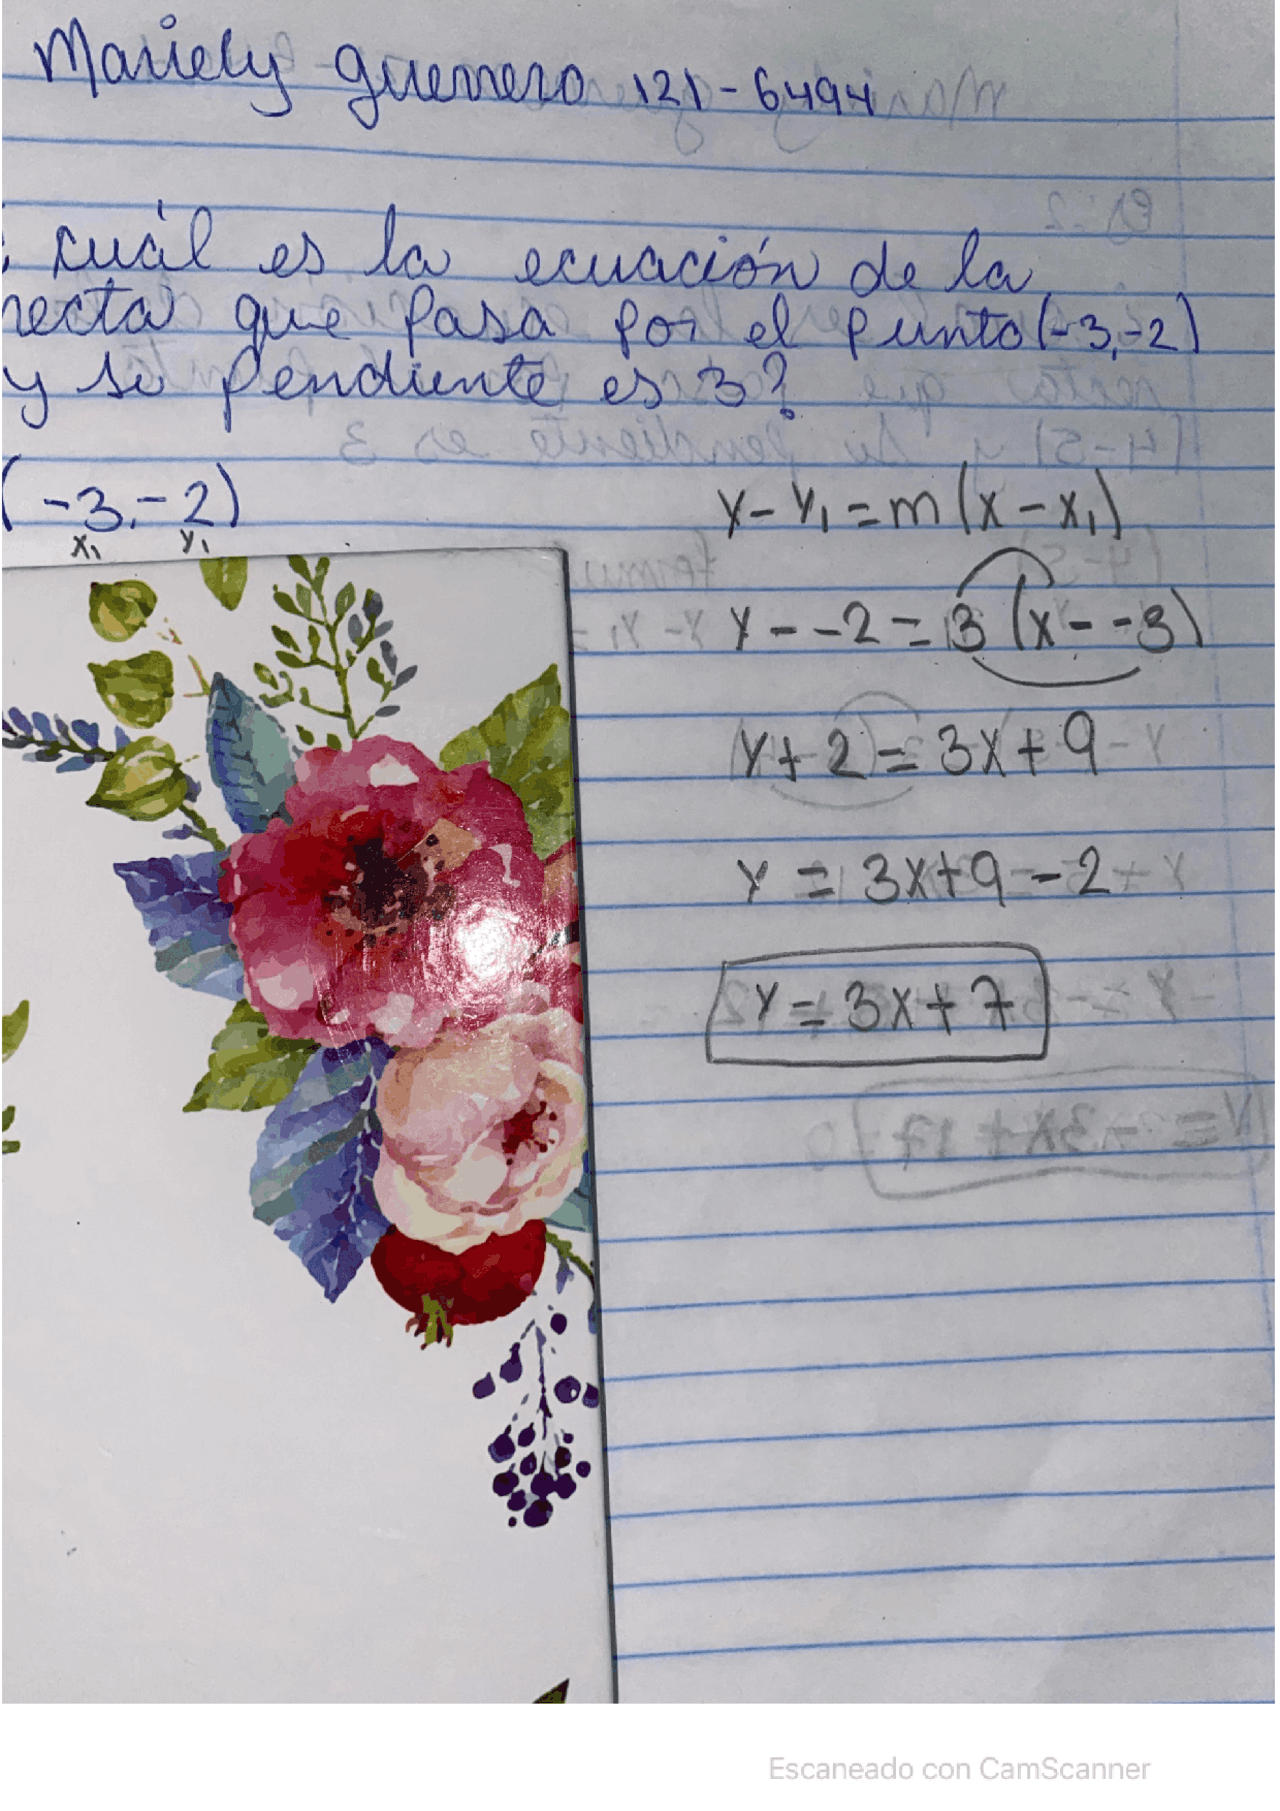 Mariely guerrero 121-6494
¿cuál es la ecuación de la
recta que pasa por el punto (-3,-2)
y si pendiente es 3?
(-3,-2)
x₁ y₁
y-y₁=m(x-x₁)
y--2=3(x--3)
y+2=3x+9
y=3x+9-2
y=3x+7
Escaneado con CamScanner